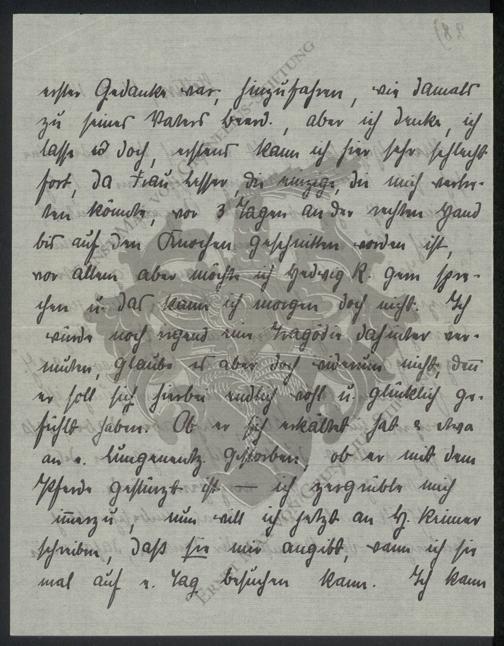 28)
erster Gedanke war, hinzufahren, wie damals
zu seines Vaters Beerd., aber ich denke, ich
lasse es doch, erstens kann ich hier sehr schlecht
fort, da Frau Lesser, die einzige, die mich vertre-
ten könnte, vor 3 Tagen an der rechten Hand
bis auf den Knochen geschnitten worden ist,
vor allem aber möchte ich Hedwig K. gern spre-
chen u. das kann ich morgen doch nicht. Ich
würde noch irgend eine Tragödie dahinter ver-
muten, glaube es aber doch wiederum nicht, denn
er soll sich hierbei endlich wohl u. glücklich ge-
fühlt haben. Ob er sich erkältet hat u. etwa
an e. Lungenentz. gestorben, ob er mit dem
Pferde gestürzt ist — ich zergrüble mich
immerzu nun will ich jetzt an H. Krimer
schreiben, daß sie mir angibt, wann ich sie
mal auf e. Tag besuchen kann. Ich kann